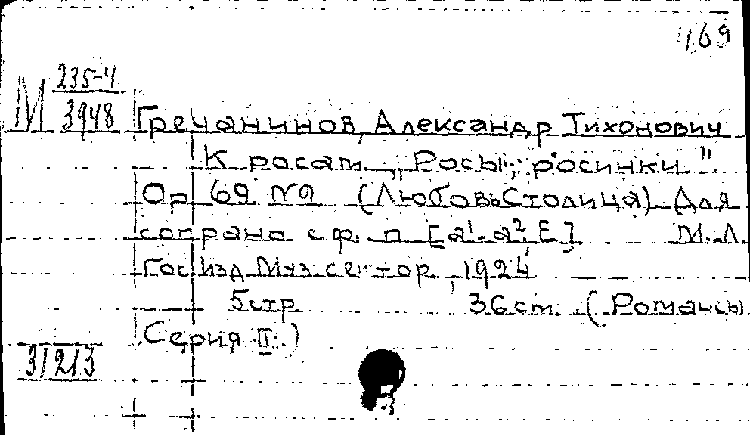 469
М 235-4
3948
Гречанинов, Александр Тихонович
К росам „Росы, росинки".
Ор 69 №2 (Любовь Столица) Для
сопрано с ф. п. [a¹-a², E] М. Л.
Госизд Муз. сектор, 1924
5стр 36см. (Романсы
Серия II.)
31213